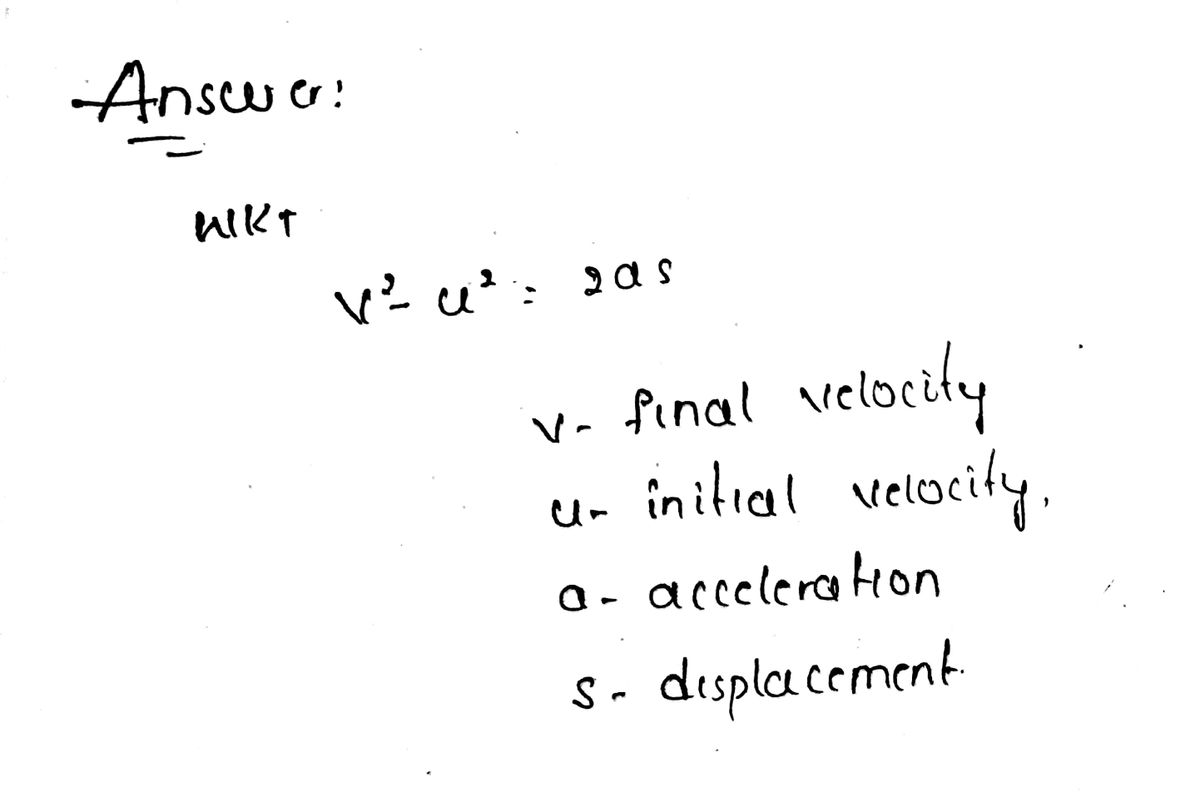 Answer:
WKT
v² - u² = 2as
v - final velocity
u - initial velocity.
a - acceleration
s - displacement.